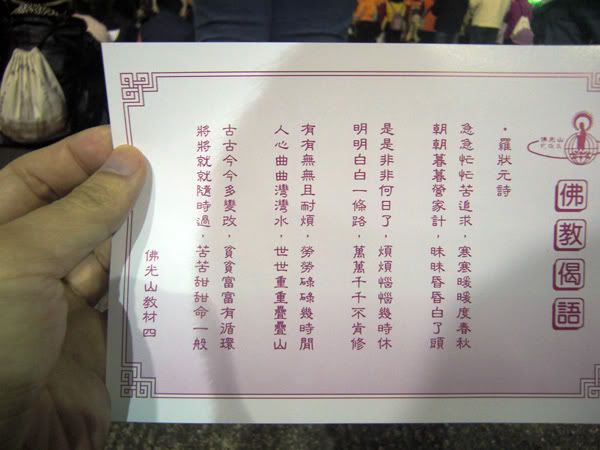 佛光山
佛教偈語
・羅狀元詩
急急忙忙苦追求，寒寒暖暖度春秋
朝朝暮暮營家計，昧昧昏昏白了頭
是是非非何日了，煩煩惱惱幾時休
明明白白一條路，萬萬千千不肯修
有有無無且耐煩，勞勞碌碌幾時閒
人心曲曲灣灣水，世世重重疊疊山
古古今今多變改，貧貧富富有循環
將將就就隨時過，苦苦甜甜命一般
佛光山教材四